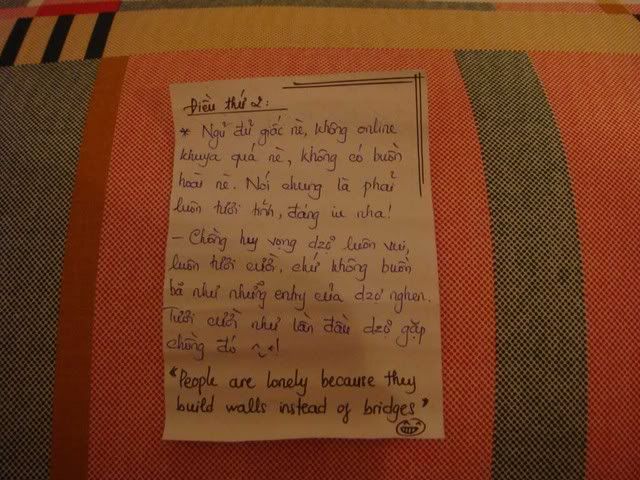 Điều thứ 2:
* Ngủ đủ giấc nè, không online
khuya quá nè, không có buồn
hoài nè. Nói chung là phải
luôn tươi tỉnh, đáng iu nha!
– Chồng hy vọng dzợ luôn vui,
luôn tươi cười, chứ không buồn
bã như những entry của dzợ nghen.
Tươi cười như lần đầu dzợ gặp
chồng đó ^_^!
"People are lonely because they
build walls instead of bridges"